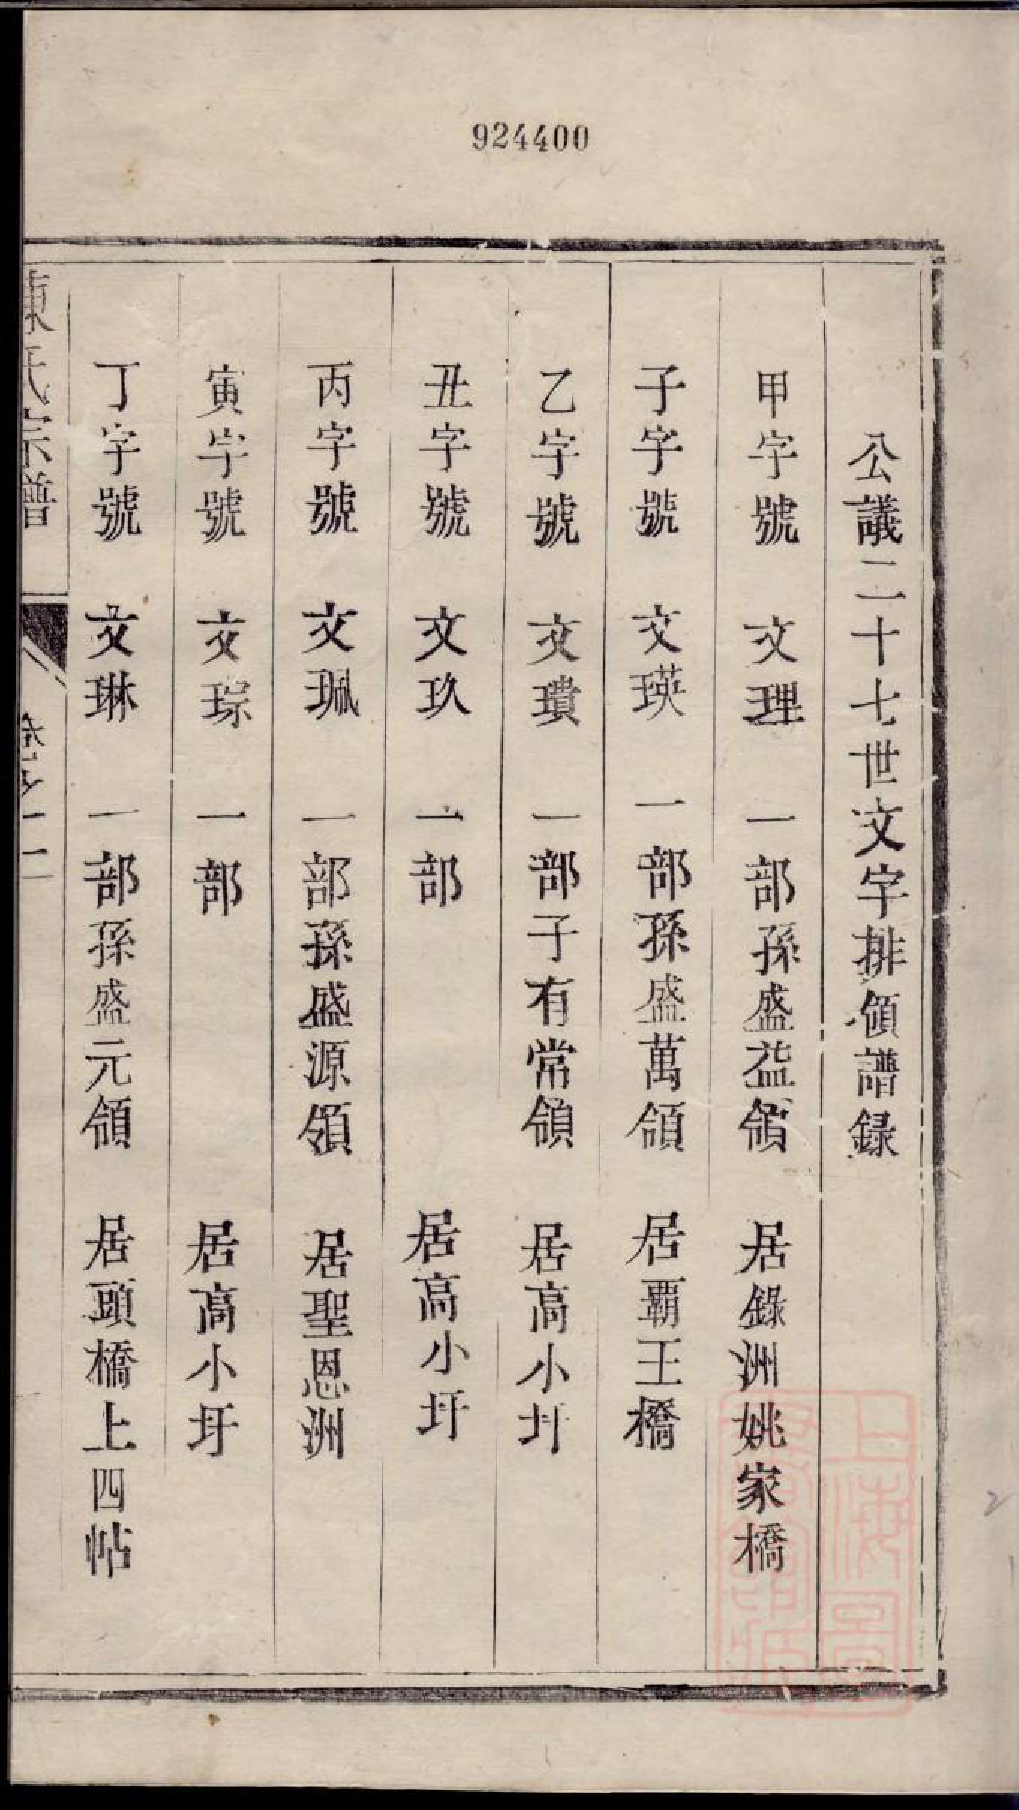 924400
公議二十七世文字排領譜録
甲字號 文理 一部孫盛益領 居錄洲姚家橋
子字號 文瑛 一部孫盛萬領 居覇王橋
乙字號 文瓄 一部子有常領 居高小圩
丑字號 文玖 一部 居高小圩
丙字號 文珮 一部孫盛源領 居聖恩洲
寅字號 文琮 一部 居高小圩
丁字號 文琳 一部孫盛元領 居頭橋上四帖
陳氏宗譜 卷之一 二